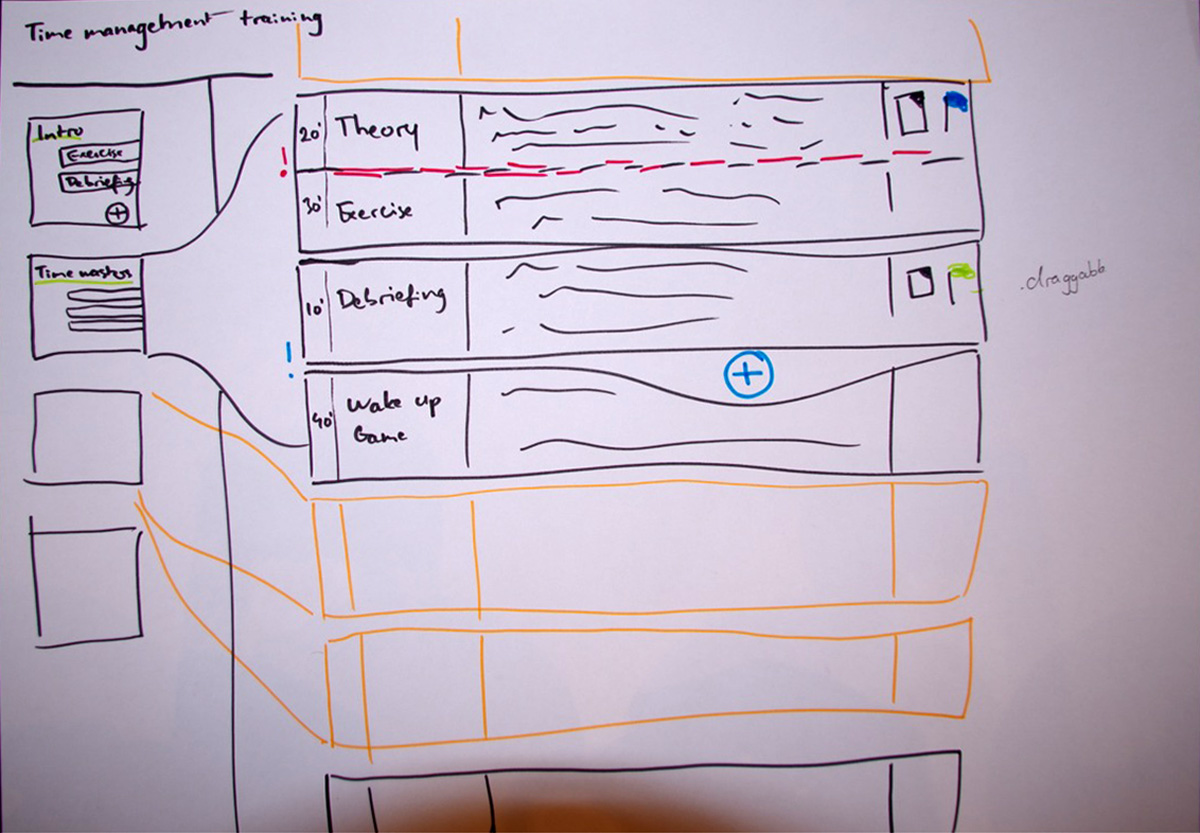 Time management training
Intro
Exercise
Debriefing
Time masters
20' Theory
!
30' Exercise
10' Debriefing
!
40' Wake up
Game
.draggable